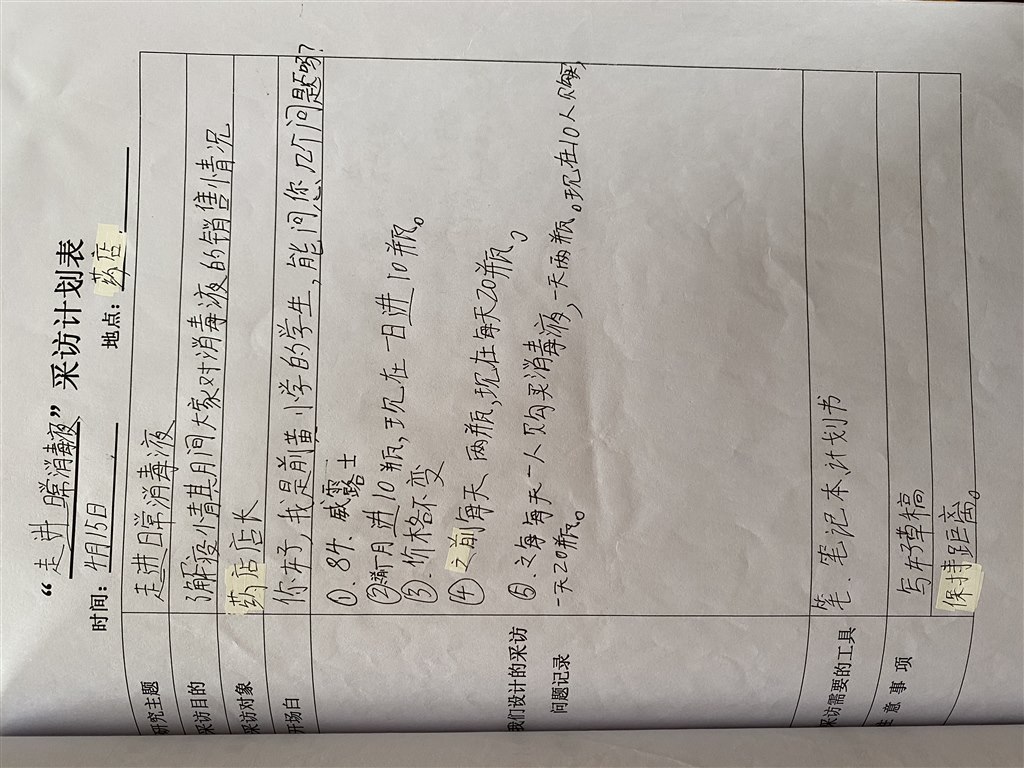 “走进日常消毒液”采访计划表
时间：4月15日 地点：药店.
研究主题 走进日常消毒液
采访目的 了解疫情其月间大家对消毒液的销售情况
采访对象 药店店长
开场白 你好，我是前黄小学的学生，能问您几个问题吗？
我们设计的采访问题记录
①. 84. 威露士
②.之前一月进10瓶，现在一日进10瓶。
③. 价格不变
④ 之前每天两瓶，现在每天20瓶。
⑥.之每每天一人购买消毒液，一天两瓶。现在10人购买，
一天20瓶。
采访需要的工具 笔、笔记本、计划书
注意事项 写好草稿
保持距离。